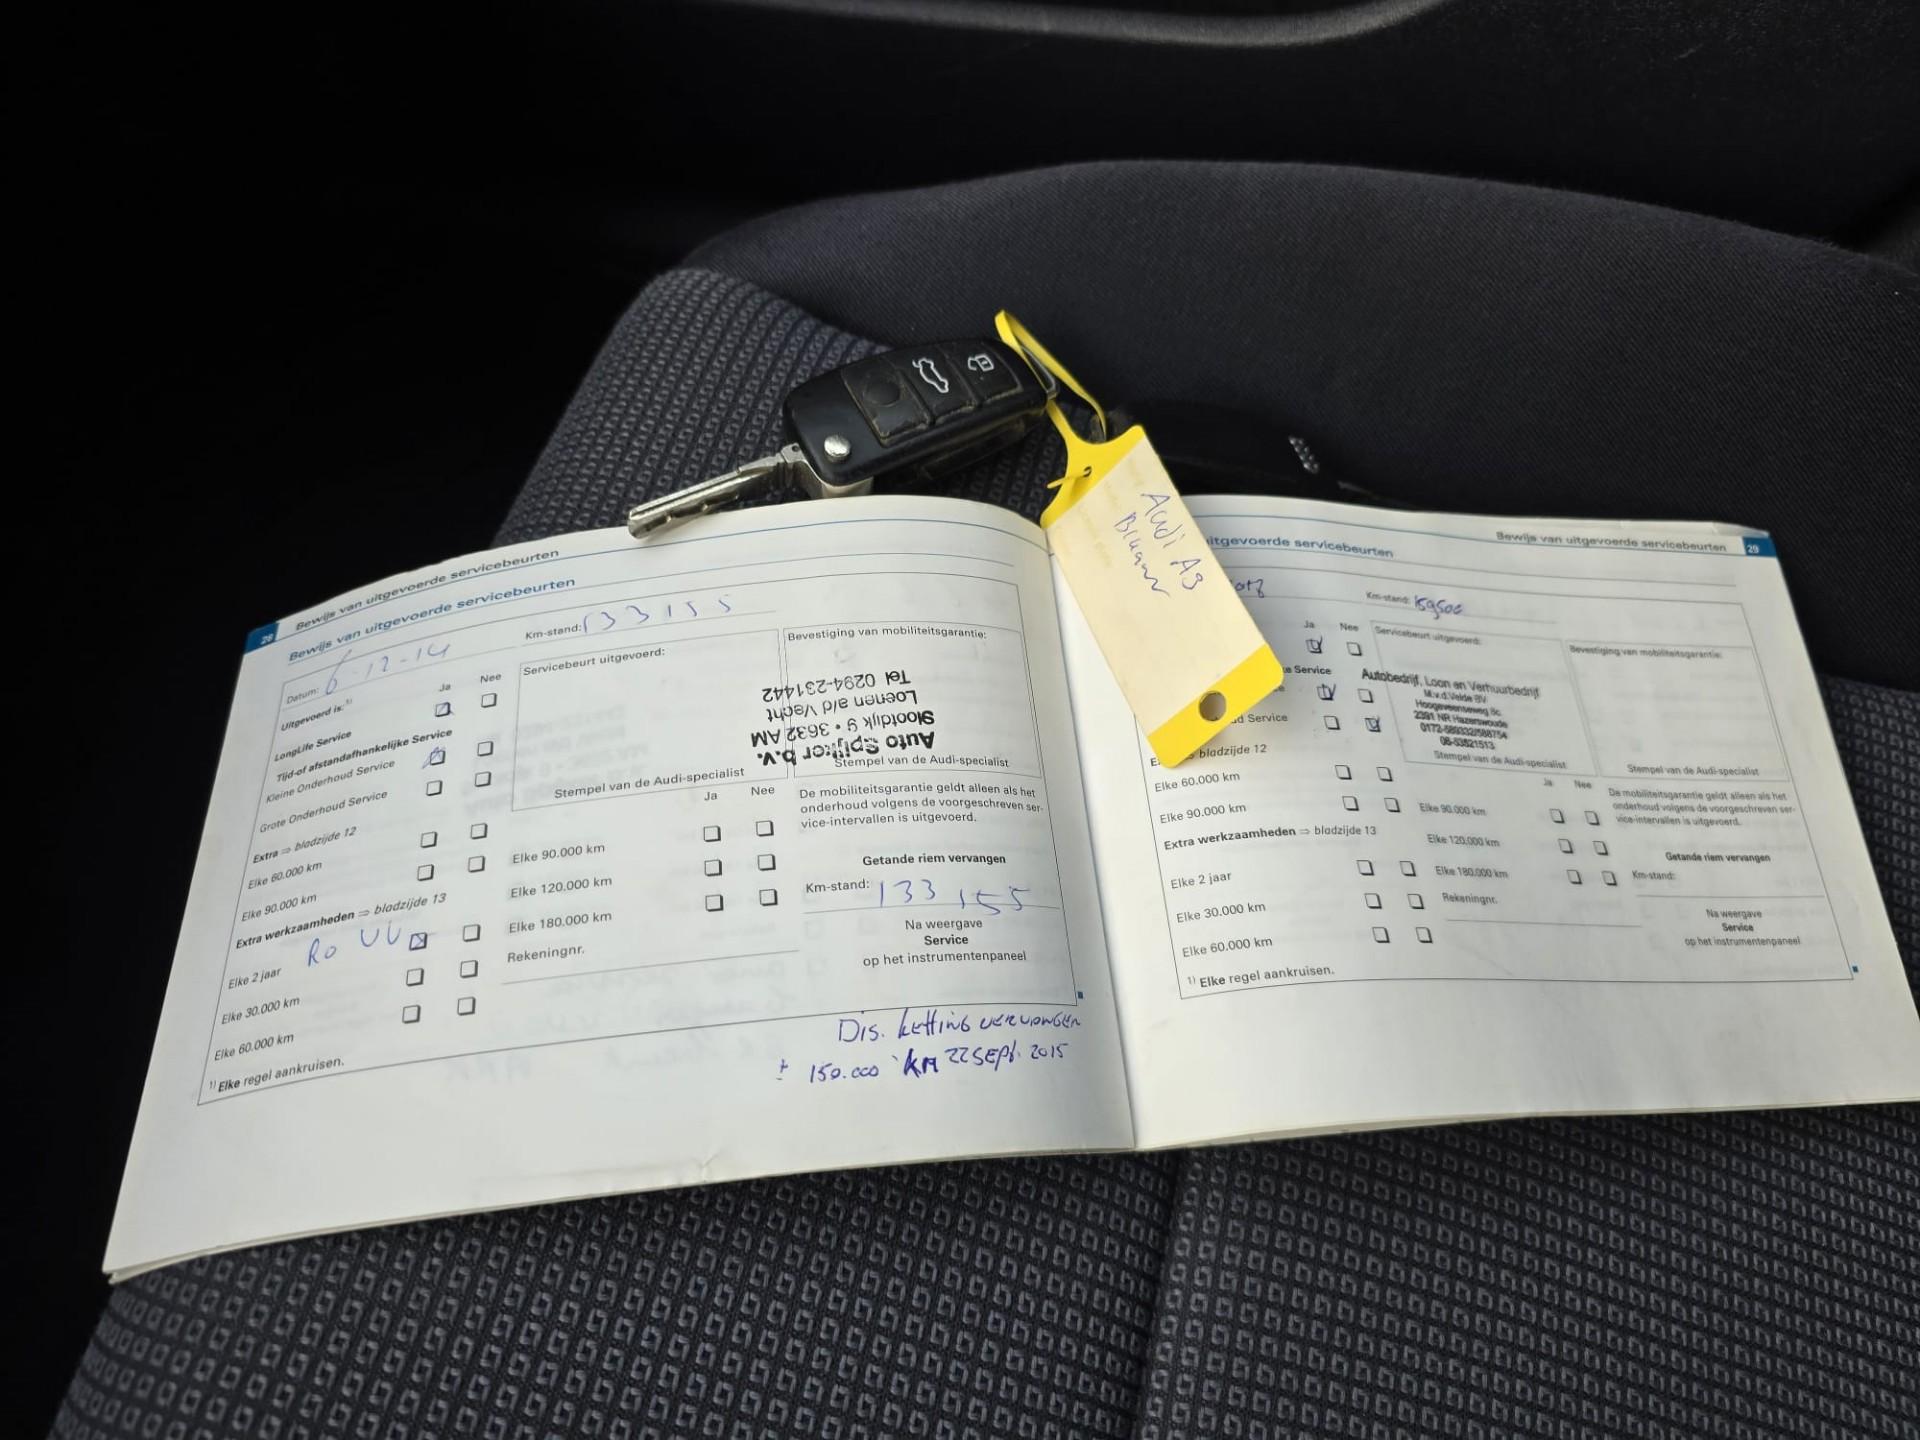 28 Bewijs van uitgevoerde servicebeurten
Bewijs van uitgevoerde servicebeurten
Datum: 6-12-14
Km-stand: 133155
Uitgevoerd is:¹⁾
Ja Nee
LongLife Service
Tijd-of afstandafhankelijke Service
Kleine Onderhoud Service
Grote Onderhoud Service
Extra ⇒ bladzijde 12
Elke 60.000 km
Elke 90.000 km
Extra werkzaamheden ⇒ bladzijde 13
Elke 2 jaar
Elke 30.000 km
Elke 60.000 km
¹⁾ Elke regel aankruisen.
Servicebeurt uitgevoerd:
Stempel van de Audi-specialist
Ja Nee
Elke 90.000 km
Elke 120.000 km
Elke 180.000 km
Rekeningnr.
Bevestiging van mobiliteitsgarantie:
Auto Spijker b.v.
Slootdijk 9 • 3632 AM
Loenen a/d Vecht
Tel 0294-231442
Stempel van de Audi-specialist
De mobiliteitsgarantie geldt alleen als het
onderhoud volgens de voorgeschreven ser-
vice-intervallen is uitgevoerd.
Getande riem vervangen
Km-stand: 133 155
Na weergave
Service
op het instrumentenpaneel
Dis. ketting vervangen
± 150.000 km 22 Sept. 2015
Audi A3
Bewijs van uitgevoerde servicebeurten 29
itgevoerde servicebeurten
Km-stand: 159500
Ja Nee
e Service
d Service
bladzijde 12
Elke 60.000 km
Elke 90.000 km
Extra werkzaamheden ⇒ bladzijde 13
Elke 2 jaar
Elke 30.000 km
Elke 60.000 km
¹⁾ Elke regel aankruisen.
Servicebeurt uitgevoerd:
Autobedrijf, Loon en Verhuurbedrijf
M.v.d.Velde BV
Hoogeveenseweg 8c
2391 NR Hazerswoude
Stempel van de Audi-specialist
Ja Nee
Elke 90.000 km
Elke 120.000 km
Elke 180.000 km
Rekeningnr.
Bevestiging van mobiliteitsgarantie:
Stempel van de Audi-specialist
De mobiliteitsgarantie geldt alleen als het
onderhoud volgens de voorgeschreven ser-
vice-intervallen is uitgevoerd.
Getande riem vervangen
Km-stand:
Na weergave
Service
op het instrumentenpaneel